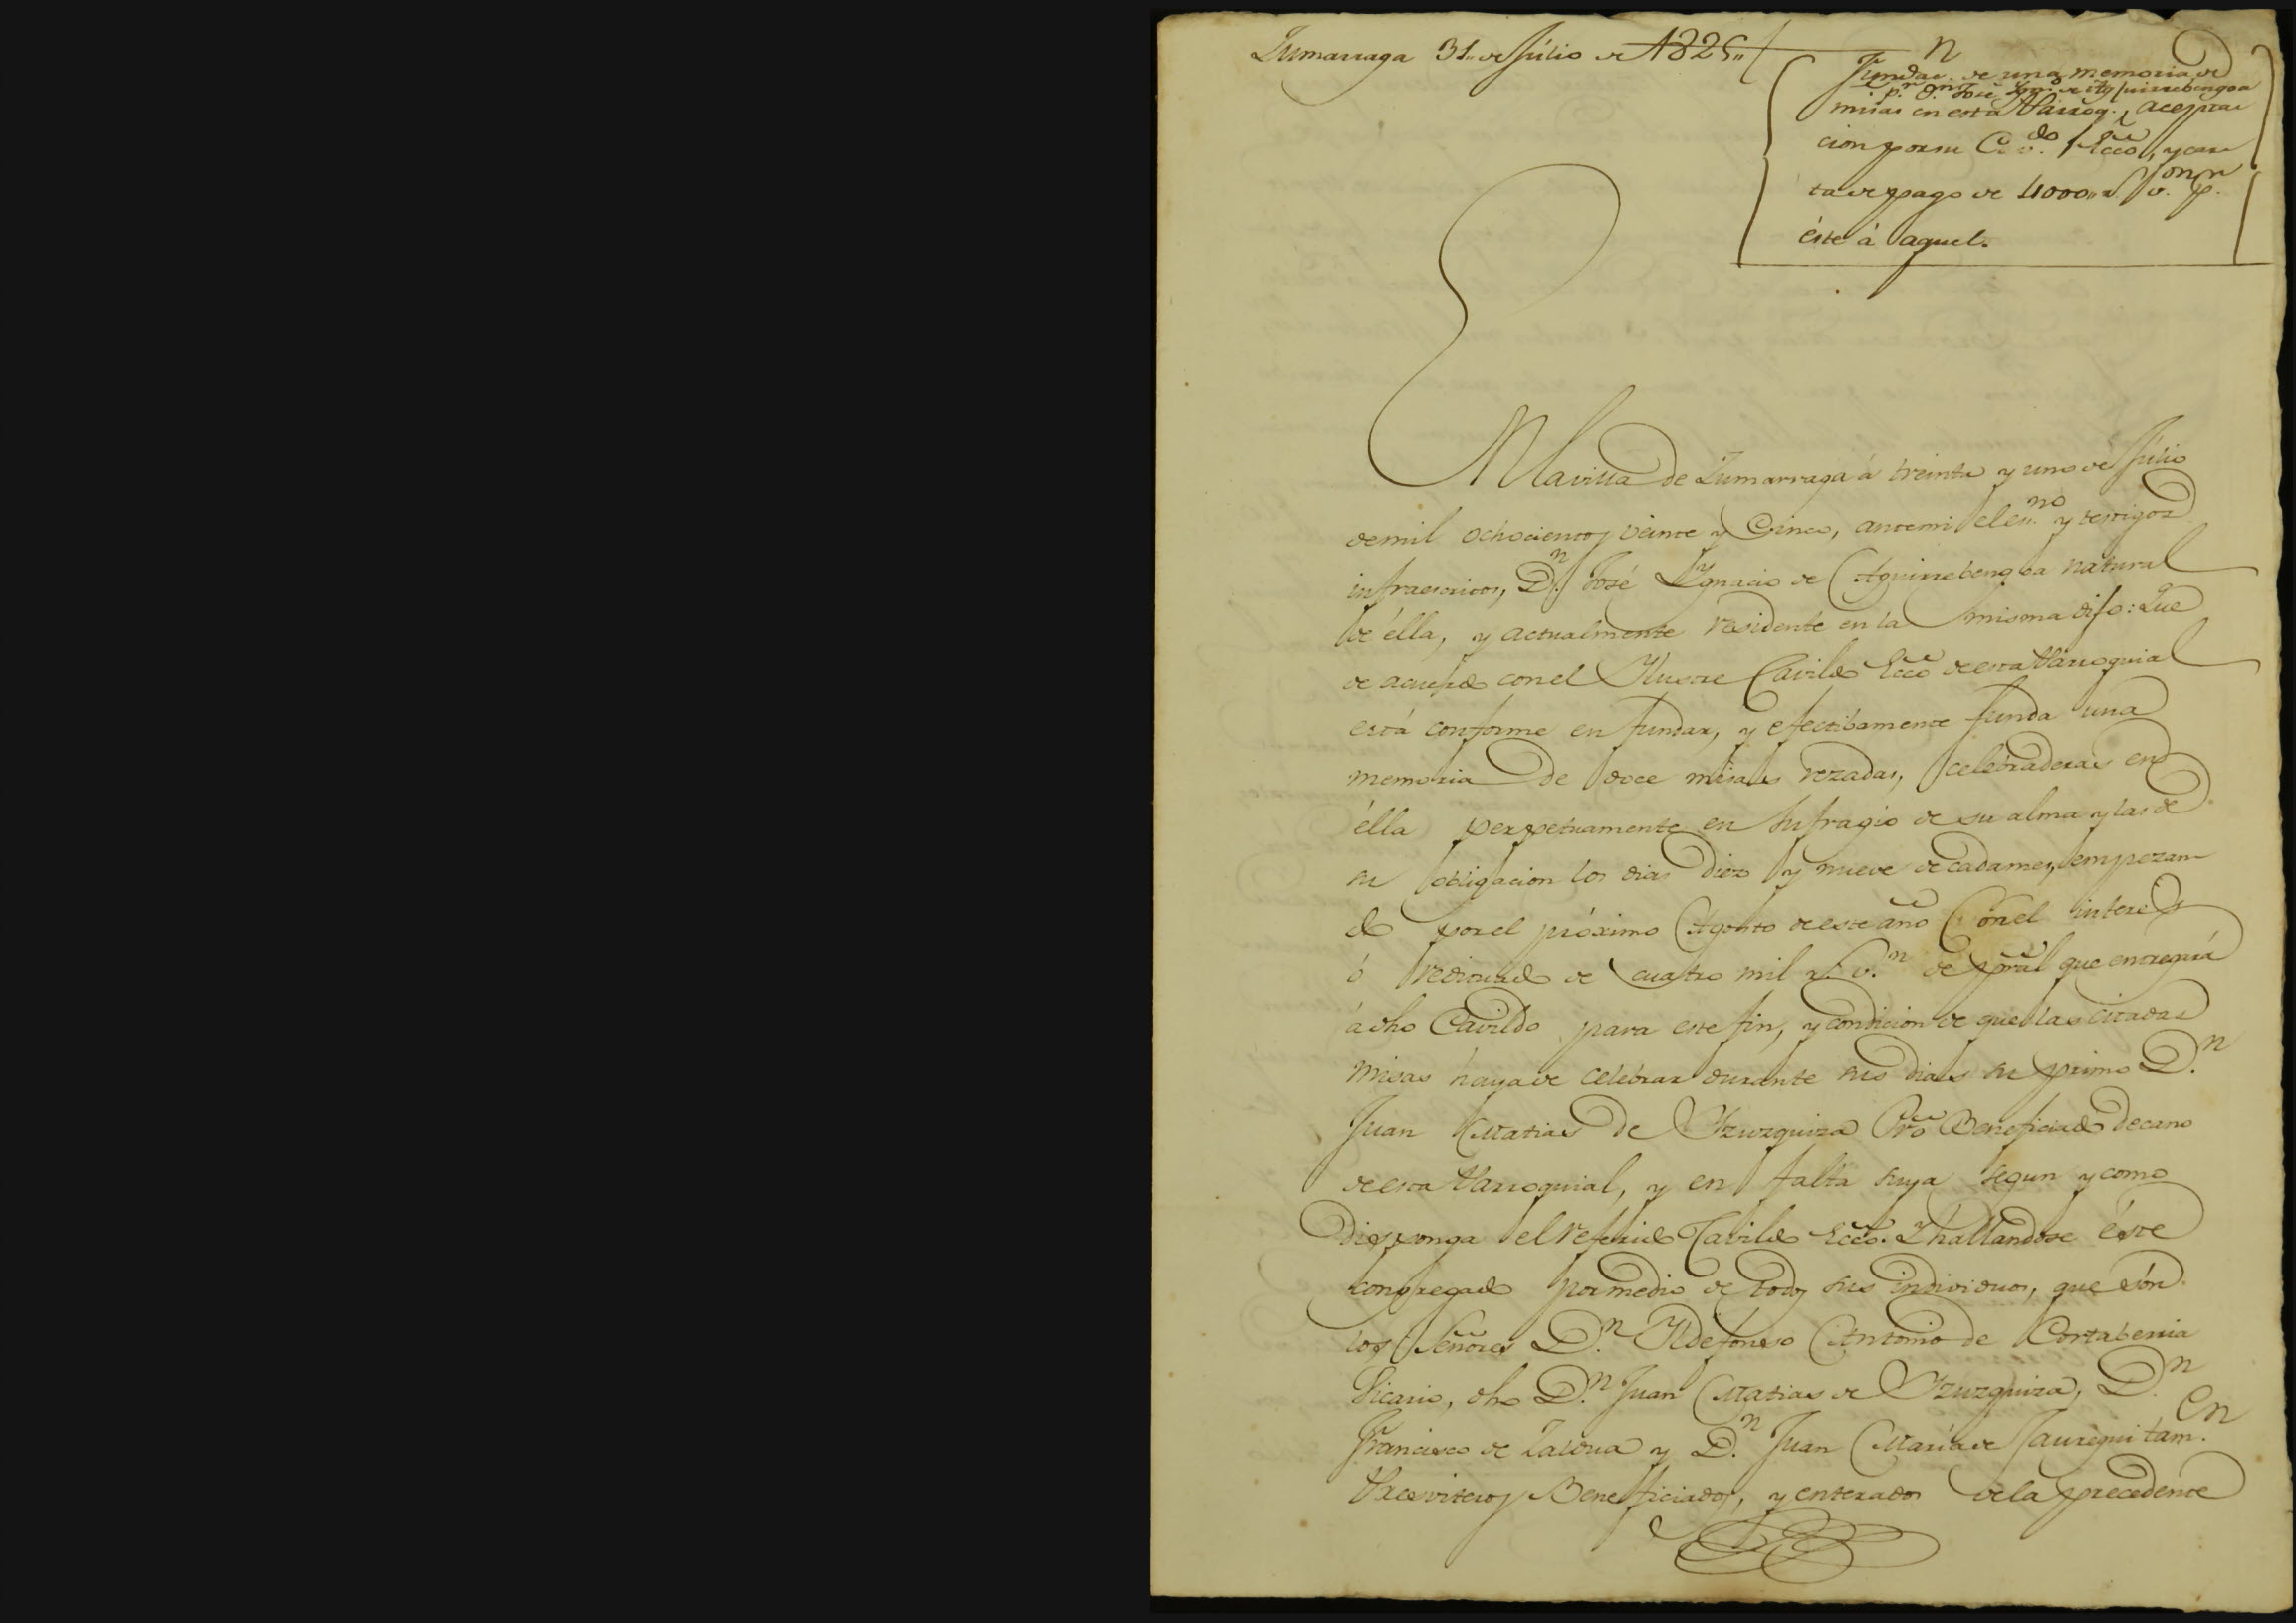 Zumarraga 31,, de Júlio de 1825,,
Fundac.n de una memoria de
p.r D.n José Ign.o de Aguirrebengoa
misas en esta Parroq.l, acepta
cion por su Cav.do Ecco, y car
ta de pago de 4000,, r.s v.on p.r
éste á aquel.
En la villa de Zumarraga á treinta y uno de Júlio
de mil ochocientos veinte y Cinco, ante mi el es.no y testigos
infraescritos, D.n José Ygnacio de Aguirrebengoa natural
de élla, y actualmente residente en la misma dijo: Que
de acuerdo con el Ylustre Cavildo Ecco de esta Parroquial
está conforme en fundar, y efectibamente funda una
memoria de doce misas rezadas, celebraderas en
élla perpetuamente en sufragio de su alma y las de
su obligacion los dias diez y nueve de cada mes, empezan
do por el próximo Agosto de este año Con el interes
ó redituado de cuatro mil r.s v.n de pral que entregará
á dho Cavildo para este fin, y condicion de que las citadas
misas haya de celebrar durante sus dias su primo D.n
Juan Matias de Yzuzquiza Pro Beneficiado decano
de esta Parroquial, y en falta suya segun y como
disponga el referido Cavildo Ecco. Y hallandose éste
congregado por medio de todos sus individuos, que són
los Señores D.n Yldefonso Antonio de Cortaberria
Vicario, dho D.n Juan Matias de Yzuzquiza, D.n
Francisco de Zaldua y D.n Juan María de Jauregui tam.en
Presviteros Beneficiados, y enterados de la precedente